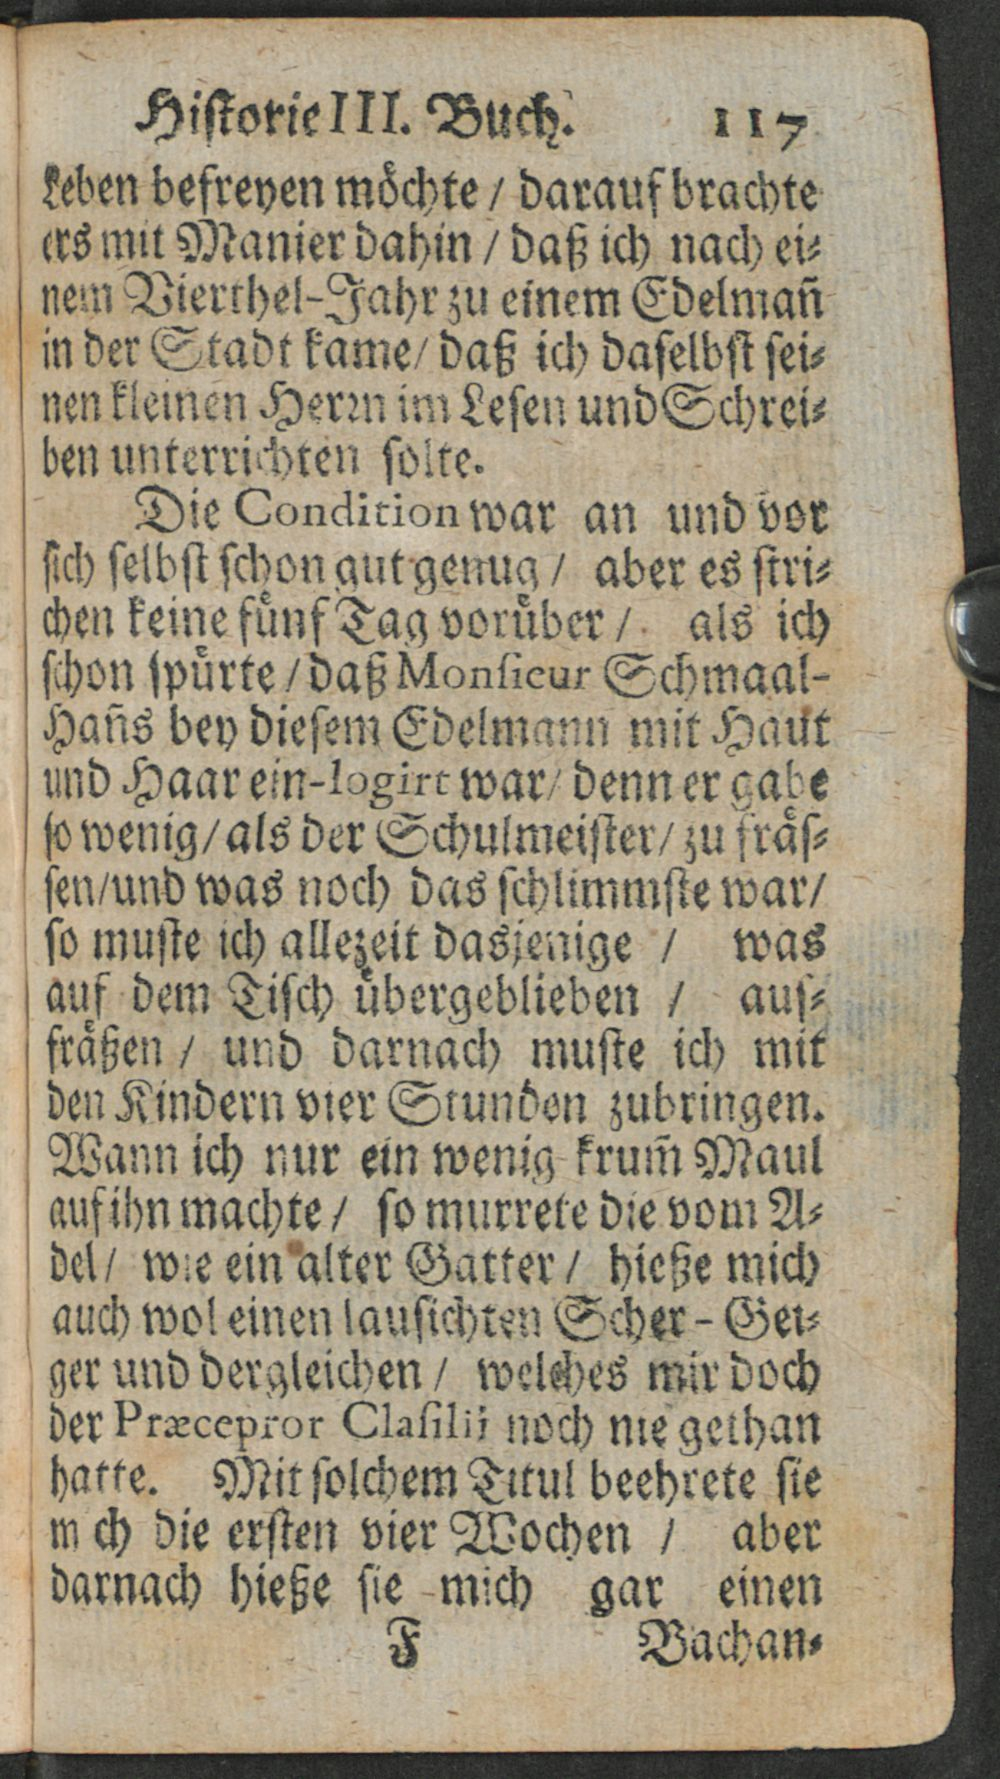 Historie III. Buch. 117
Leben befreyen möchte / darauf brachte
ers mit Manier dahin / daß ich nach ei-
nem Vierthel-Jahr zu einem Edelman̄
in der Stadt kame / daß ich daselbst sei-
nen kleinen Herrn im Lesen und Schrei-
ben unterrichten solte.
Die Condition war an und vor
sich selbst schon gut genug / aber es stri-
chen keine fünf Tag vorüber / als ich
schon spürte / daß Monsieur Schmaal-
Han̄s bey diesem Edelmann mit Haut
und Haar ein-logirt war / denn er gabe
so wenig / als der Schulmeister / zu fräs-
sen / und was noch das schlimmste war /
so muste ich allezeit dasjenige / was
auf dem Tisch übergeblieben / aus-
fräßen / und darnach muste ich mit
den Kindern vier Stunden zubringen.
Wann ich nur ein wenig krum̄ Maul
auf ihn machte / so murrete die vom A-
del / wie ein alter Gatter / hieße mich
auch wol einen lausichten Scher-Gei-
ger und dergleichen / welches mir doch
der Præceptor Clasilii noch nie gethan
hatte. Mit solchem Titul beehrete sie
mich die ersten vier Wochen / aber
darnach hieße sie mich gar einen
F Bachan-